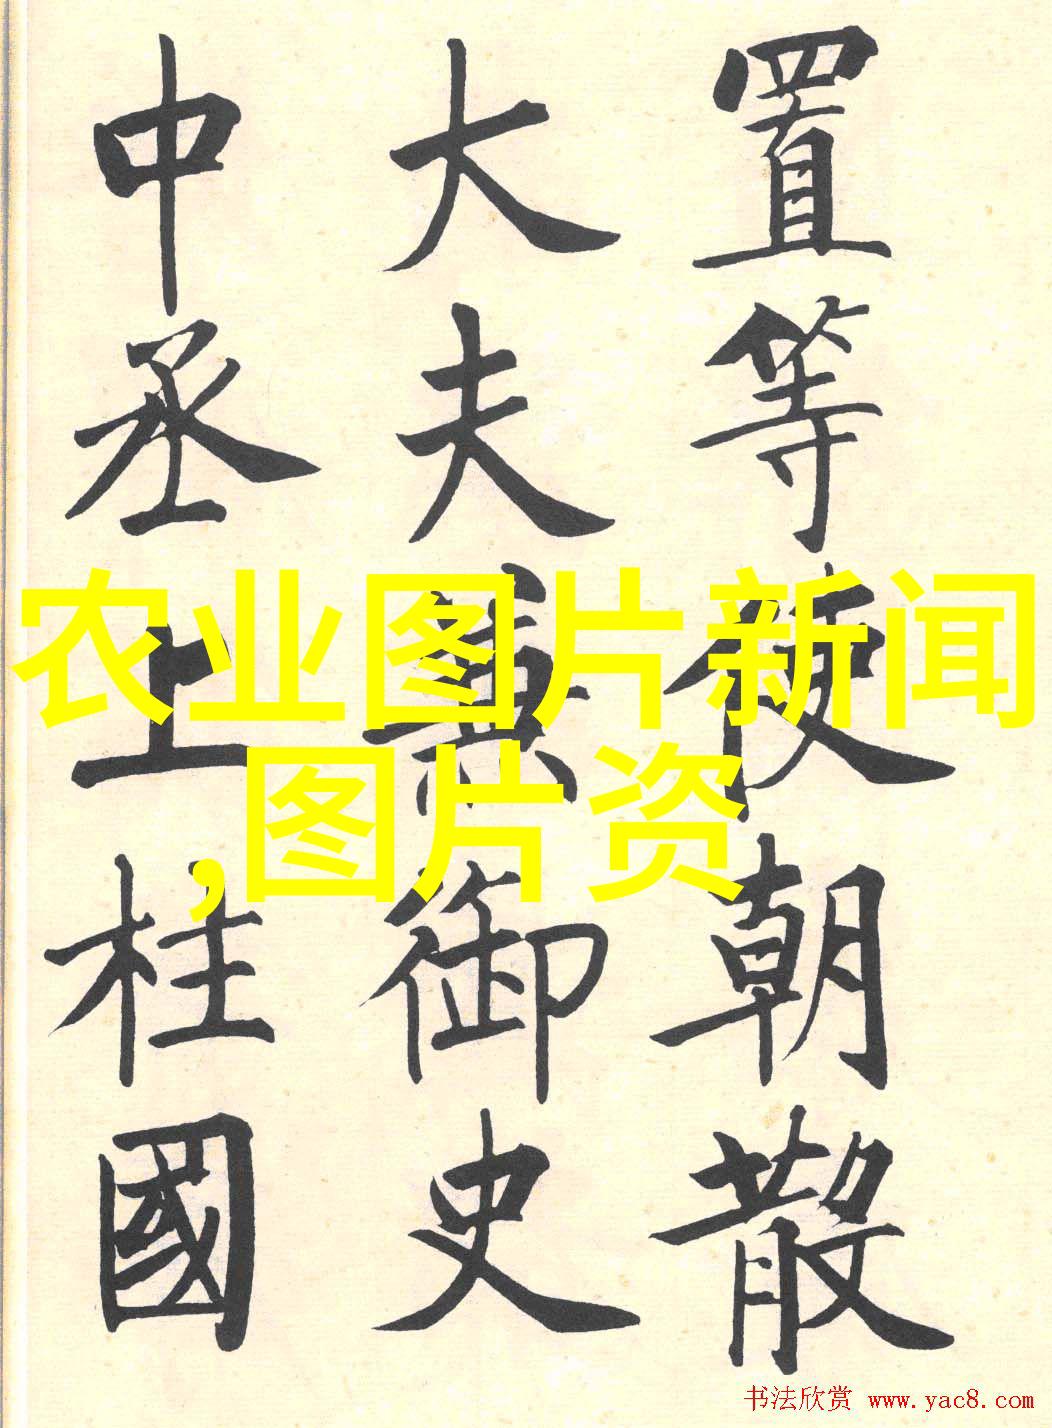 置等使朝散
大夫兼御史
中丞上柱國
农业图片新闻
,图片资
书法欣赏 www.yac8.com